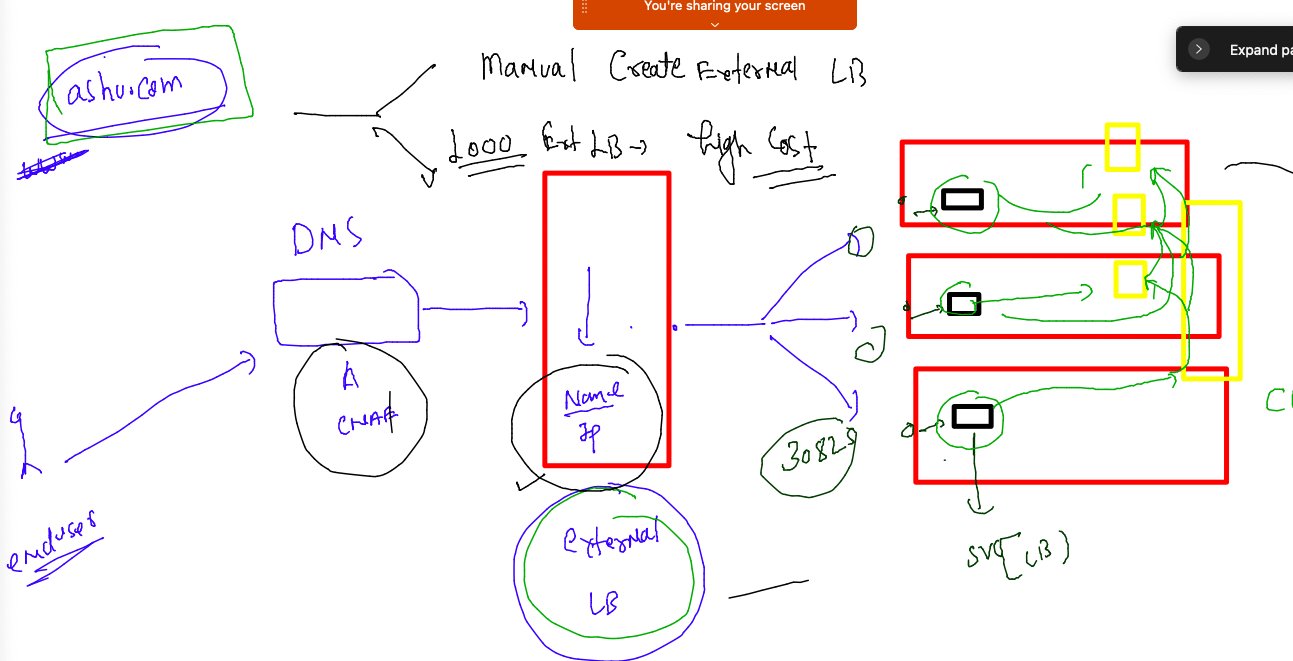 You're sharing your screen
Expand pa
ashu.com
Manual Create External LB
1000 Ext LB → high Cost
DNS
A
CNAME
Name
IP
30825
enduser
External
LB
svc (LB)